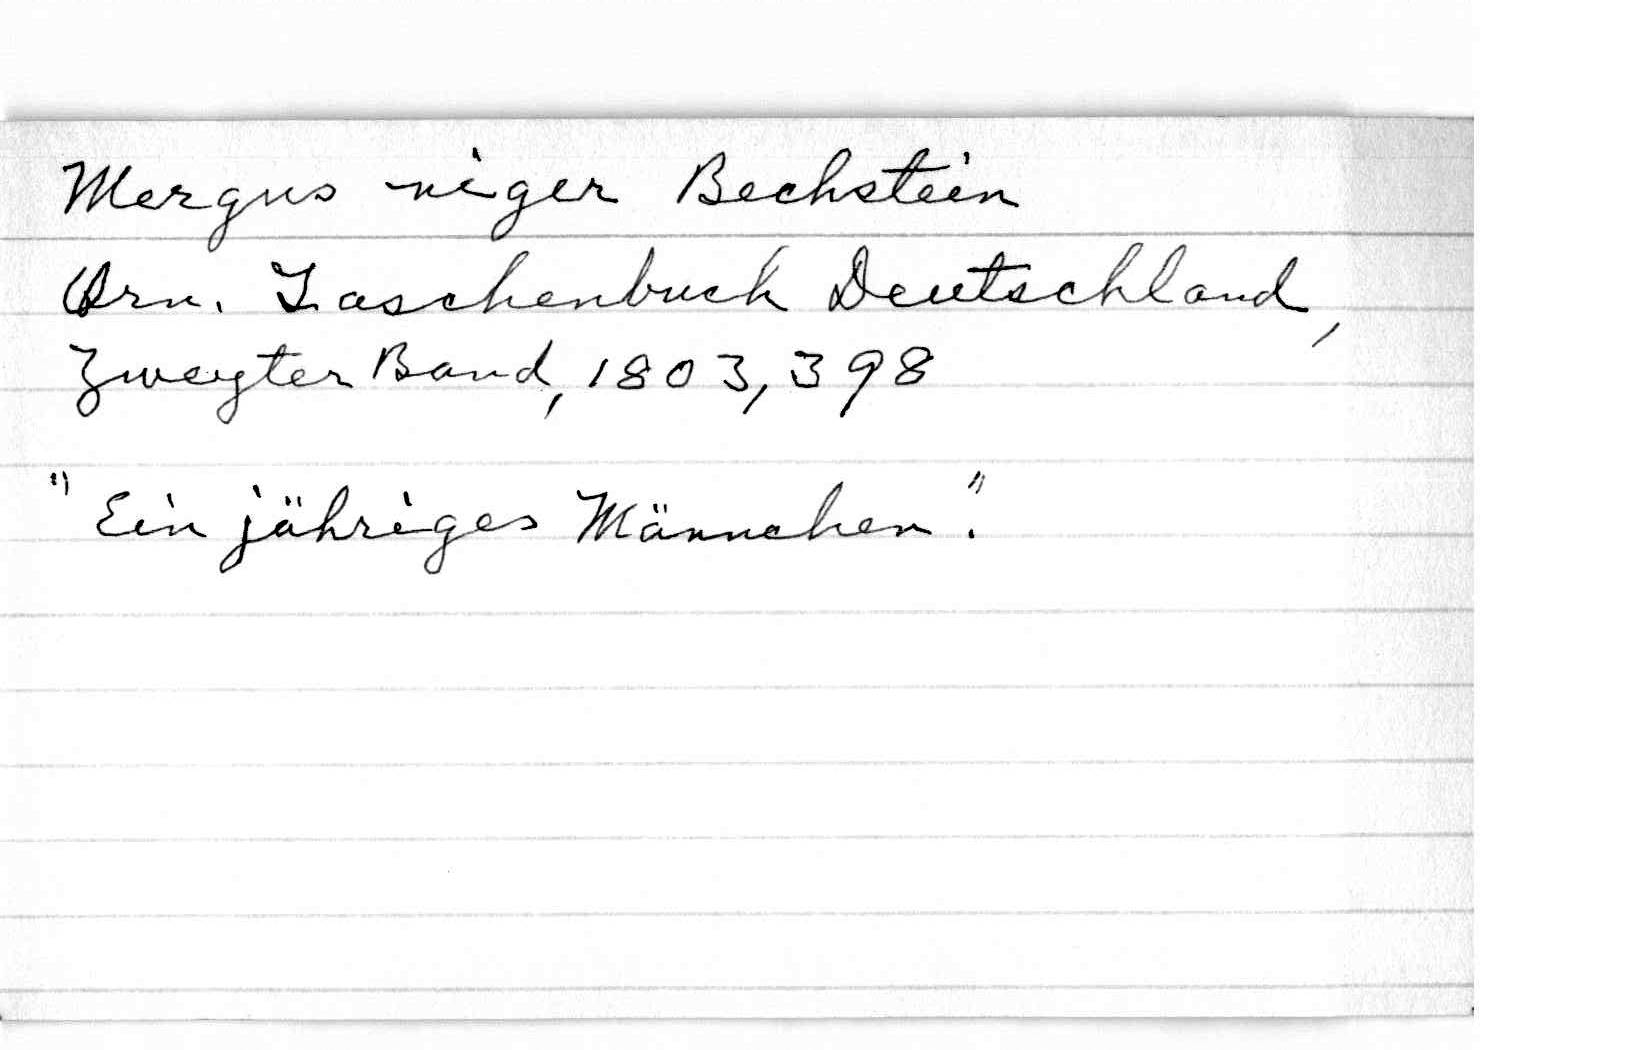 Mergus niger Bechstein
Orn. Taschenbuch Deutschland,
Zweyter Band, 1803, 398
"Ein jähriges Männchen."